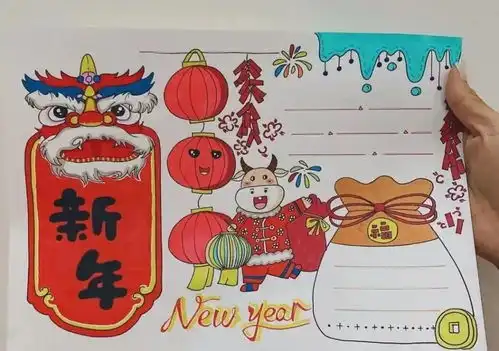 新
年
福
New year